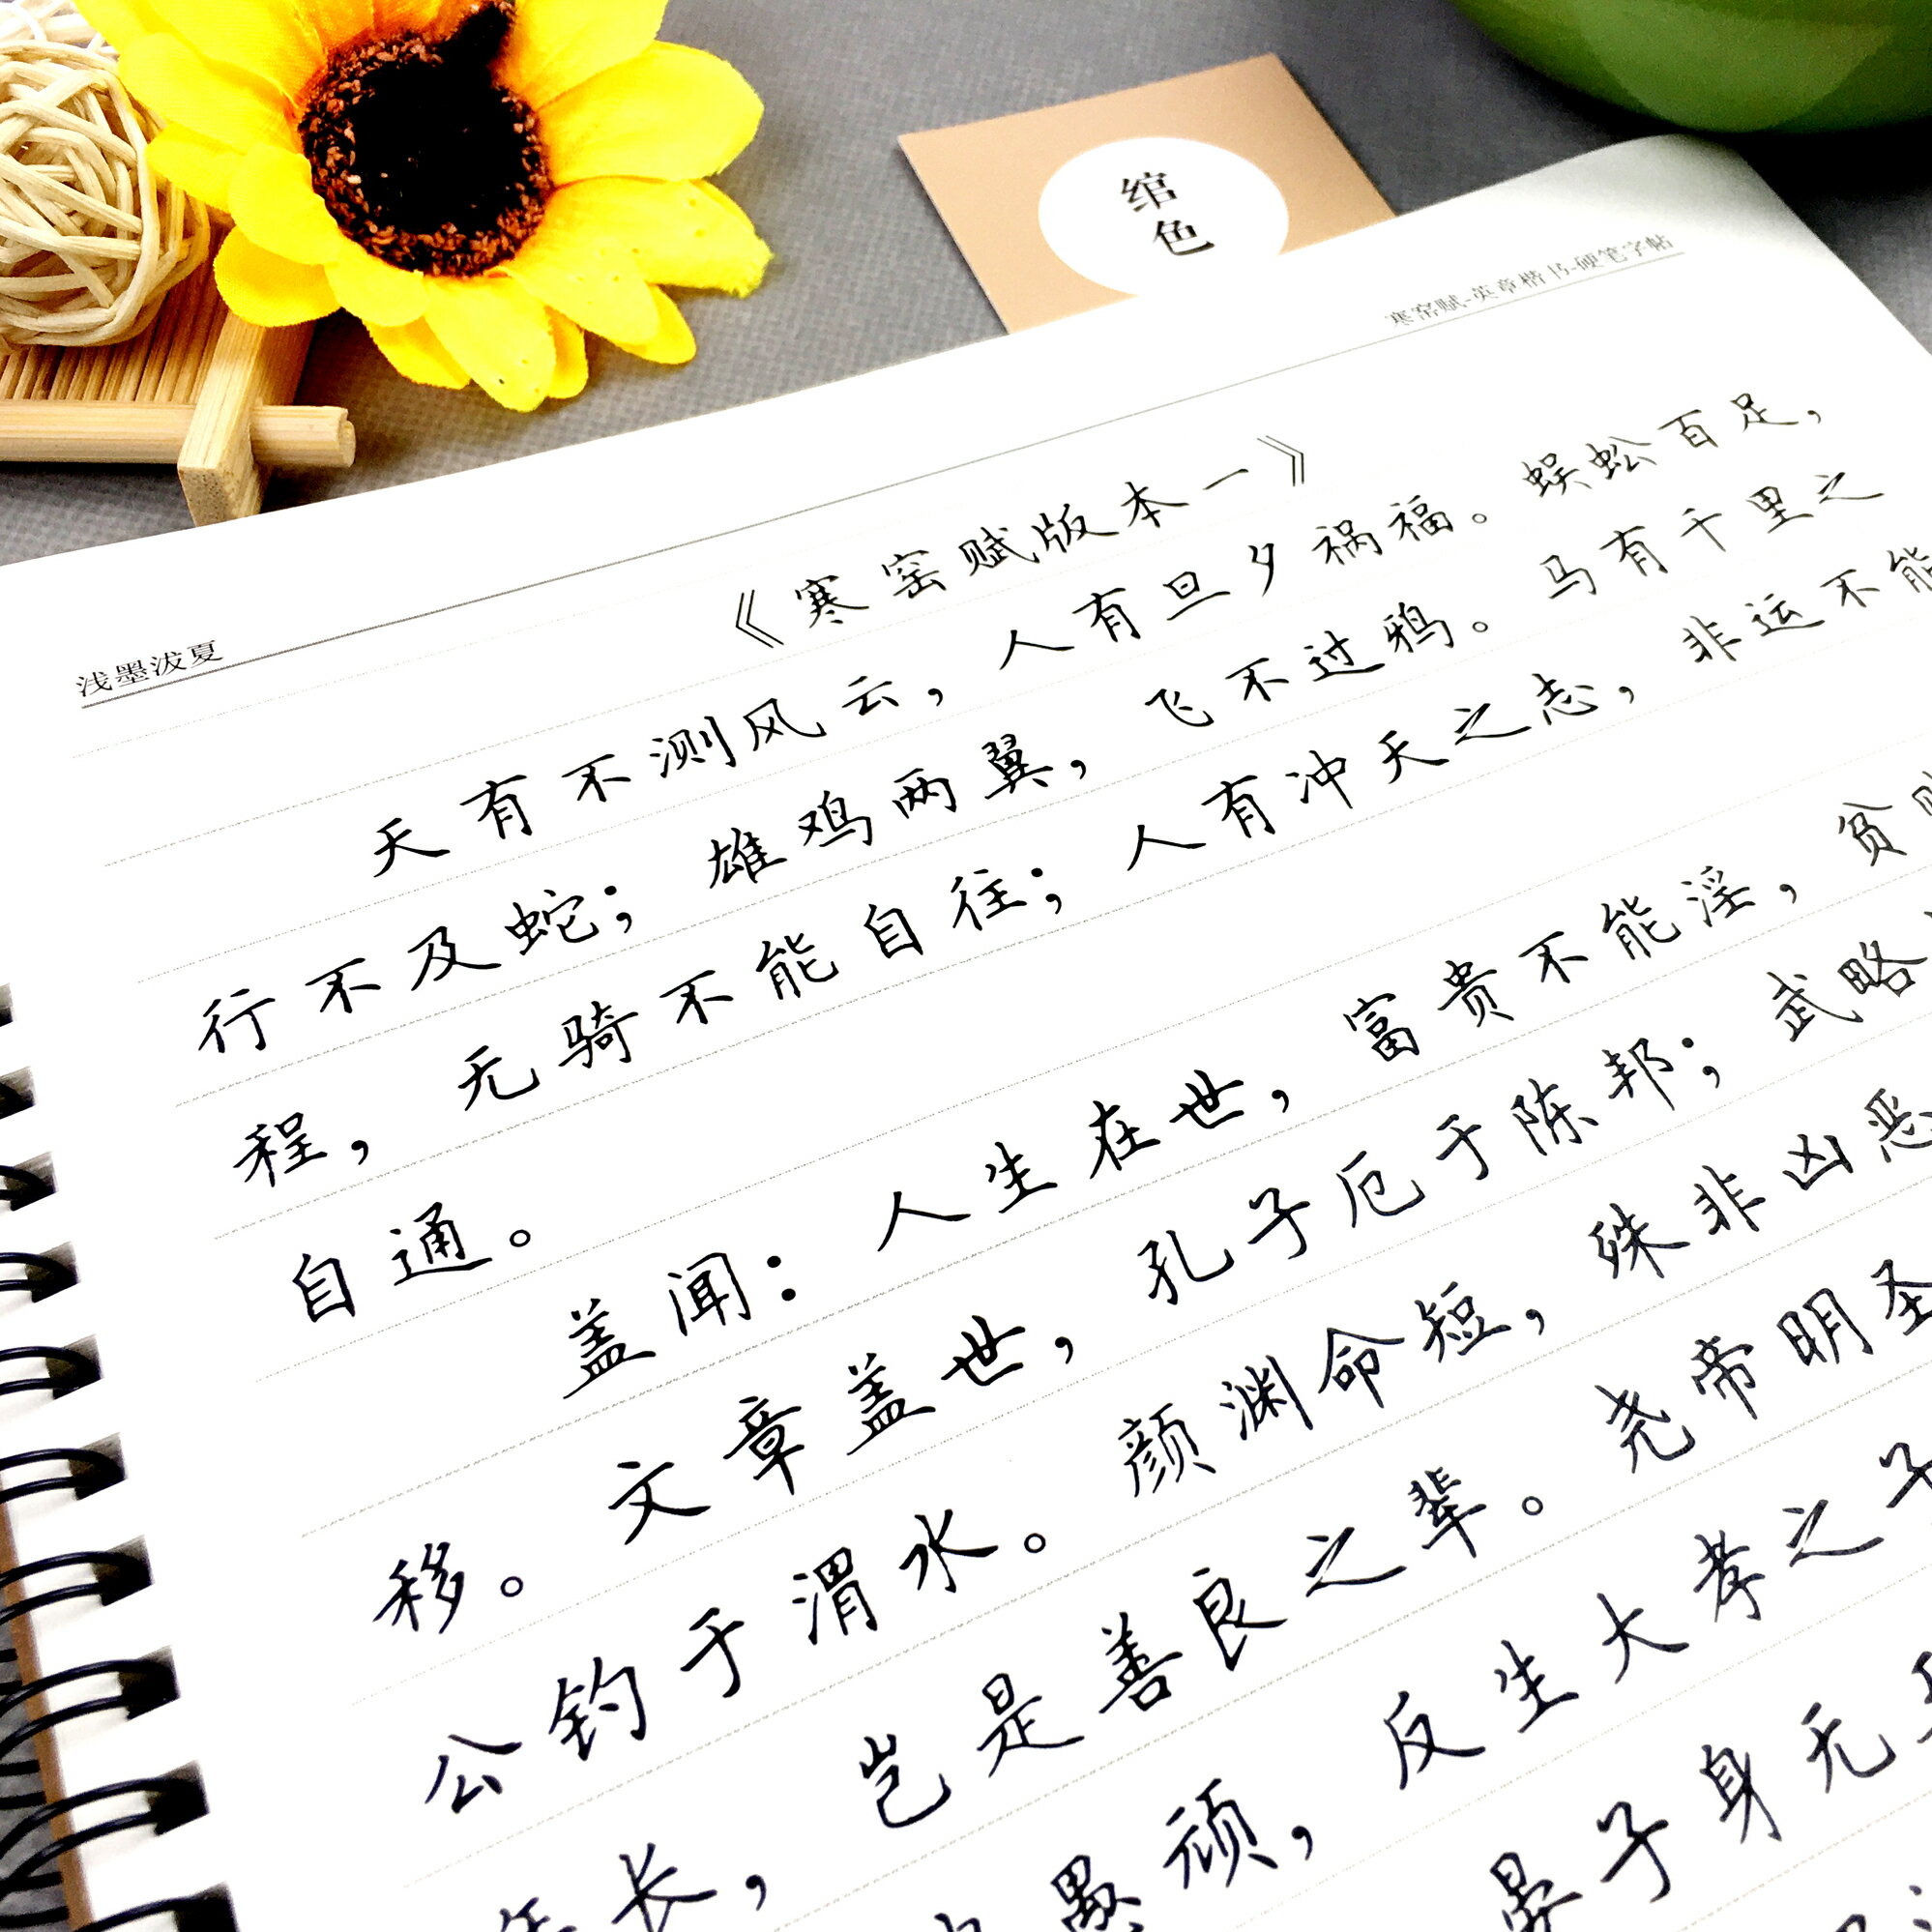 绾色
寒窑赋-英章楷书-硬笔字帖
浅墨泼夏
《寒窑赋版本一》
天有不测风云，人有旦夕祸福。蜈蚣百足，
行不及蛇；雄鸡两翼，飞不过鸦。马有千里之
程，无骑不能自往；人有冲天之志，非运不能
自通。
盖闻：人生在世，富贵不能淫，贫
移。文章盖世，孔子厄于陈邦；武略
公钓于渭水。颜渊命短，殊非凶恶
年长，岂是善良之辈。尧帝明圣
顽，反生大孝之子
晏子身无